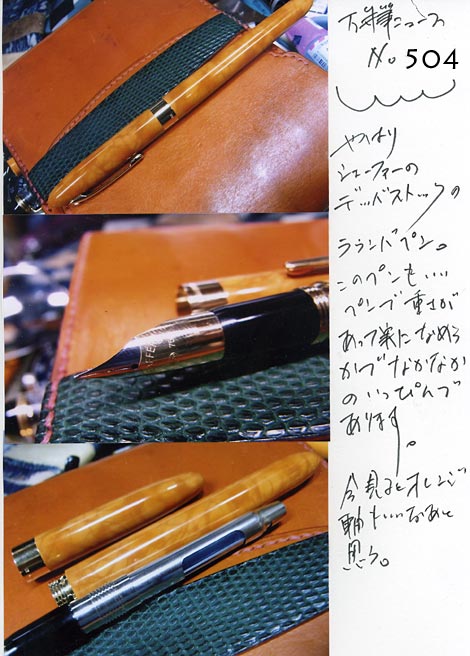 万年筆ニュース
No. 504
やはり
シェーファーの
デッドストックの
ラウンドペン。
このペンもいい
ペンで重さが
あって実になめら
かでなかなか
のいっぴんで
あります。
今見るとオレンジ
軸もいいなあと
思う。
SHEAFFER